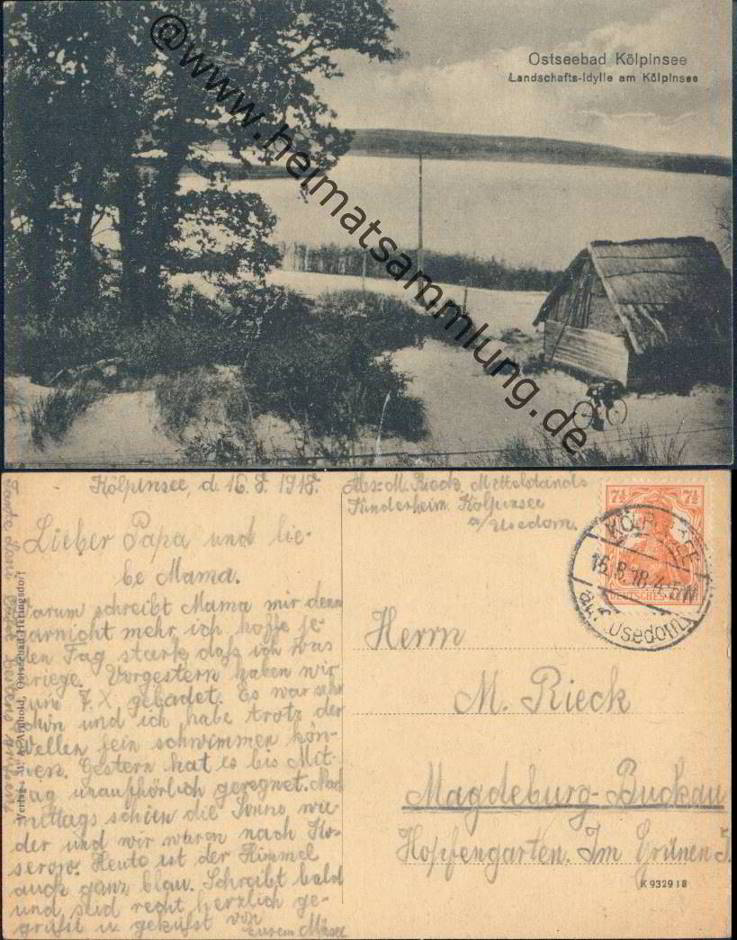 Ostseebad Kölpinsee
Landschafts-Idylle am Kölpinsee
@www.heimatsammlung.de
Kölpinsee, d. 16.8.1918.
Lieber Papa und lie-
be Mama.
Warum schreibt Mama mir denn
garnicht mehr, ich hoffe je-
den Tag stark daß ich was
kriege. Vorgestern haben wir
zum 7. X. gebadet. Es war sehr
schön und ich habe trotz der
Wellen fein schwimmen kön-
nen. Gestern hat es bis Mit-
tag unaufhörlich geregnet. Nach
mittags schien die Sonne wie
der und wir waren nach Ko-
serow. Heute ist der Himmel
auch ganz blau. Schreibt bald
und seid recht herzlich ge-
grüßt u. geküßt von
eurem
Abs: M. Rieck, Mittelstands
Kinderheim Kölpinsee
a/Usedom
7½ 7½
DEUTSCHES
KÖLPINSEE
16.8.18.4-5N
auf Usedom
Herrn
M. Rieck
Magdeburg-Buckau
Hopfengarten. Im Grünen
K 9329 18
Ostseebad Heringsdorf